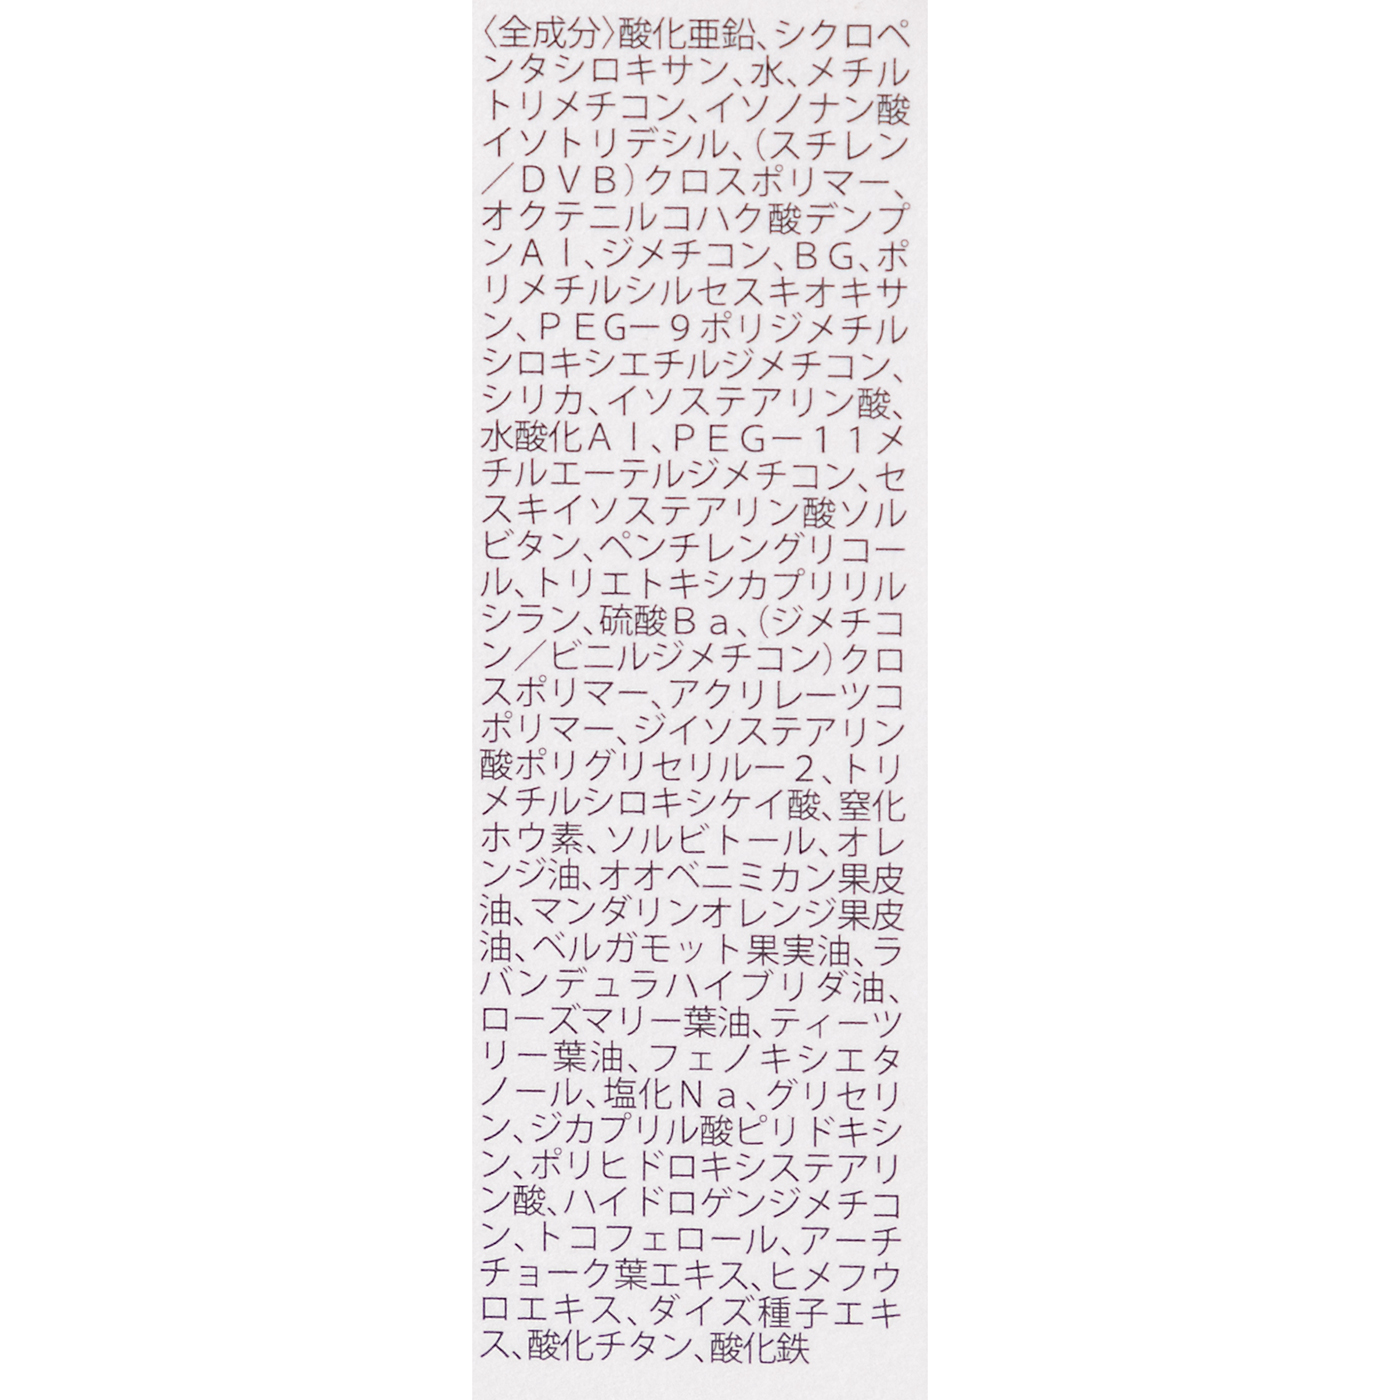 〈全成分〉酸化亜鉛、シクロペ
ンタシロキサン、水、メチル
トリメチコン、イソノナン酸
イソトリデシル、（スチレン
／ＤＶＢ）クロスポリマー、
オクテニルコハク酸デンプ
ンＡｌ、ジメチコン、ＢＧ、ポ
リメチルシルセスキオキサ
ン、ＰＥＧ－９ポリジメチル
シロキシエチルジメチコン、
シリカ、イソステアリン酸、
水酸化Ａｌ、ＰＥＧ－１１メ
チルエーテルジメチコン、セ
スキイソステアリン酸ソル
ビタン、ペンチレングリコー
ル、トリエトキシカプリリル
シラン、硫酸Ｂａ、（ジメチコ
ン／ビニルジメチコン）クロ
スポリマー、アクリレーツコ
ポリマー、ジイソステアリン
酸ポリグリセリル－２、トリ
メチルシロキシケイ酸、窒化
ホウ素、ソルビトール、オレ
ンジ油、オオベニミカン果皮
油、マンダリンオレンジ果皮
油、ベルガモット果実油、ラ
バンデュラハイブリダ油、
ローズマリー葉油、ティーツ
リー葉油、フェノキシエタ
ノール、塩化Ｎａ、グリセリ
ン、ジカプリル酸ピリドキシ
ン、ポリヒドロキシステアリ
ン酸、ハイドロゲンジメチコ
ン、トコフェロール、アーチ
チョーク葉エキス、ヒメフウ
ロエキス、ダイズ種子エキ
ス、酸化チタン、酸化鉄